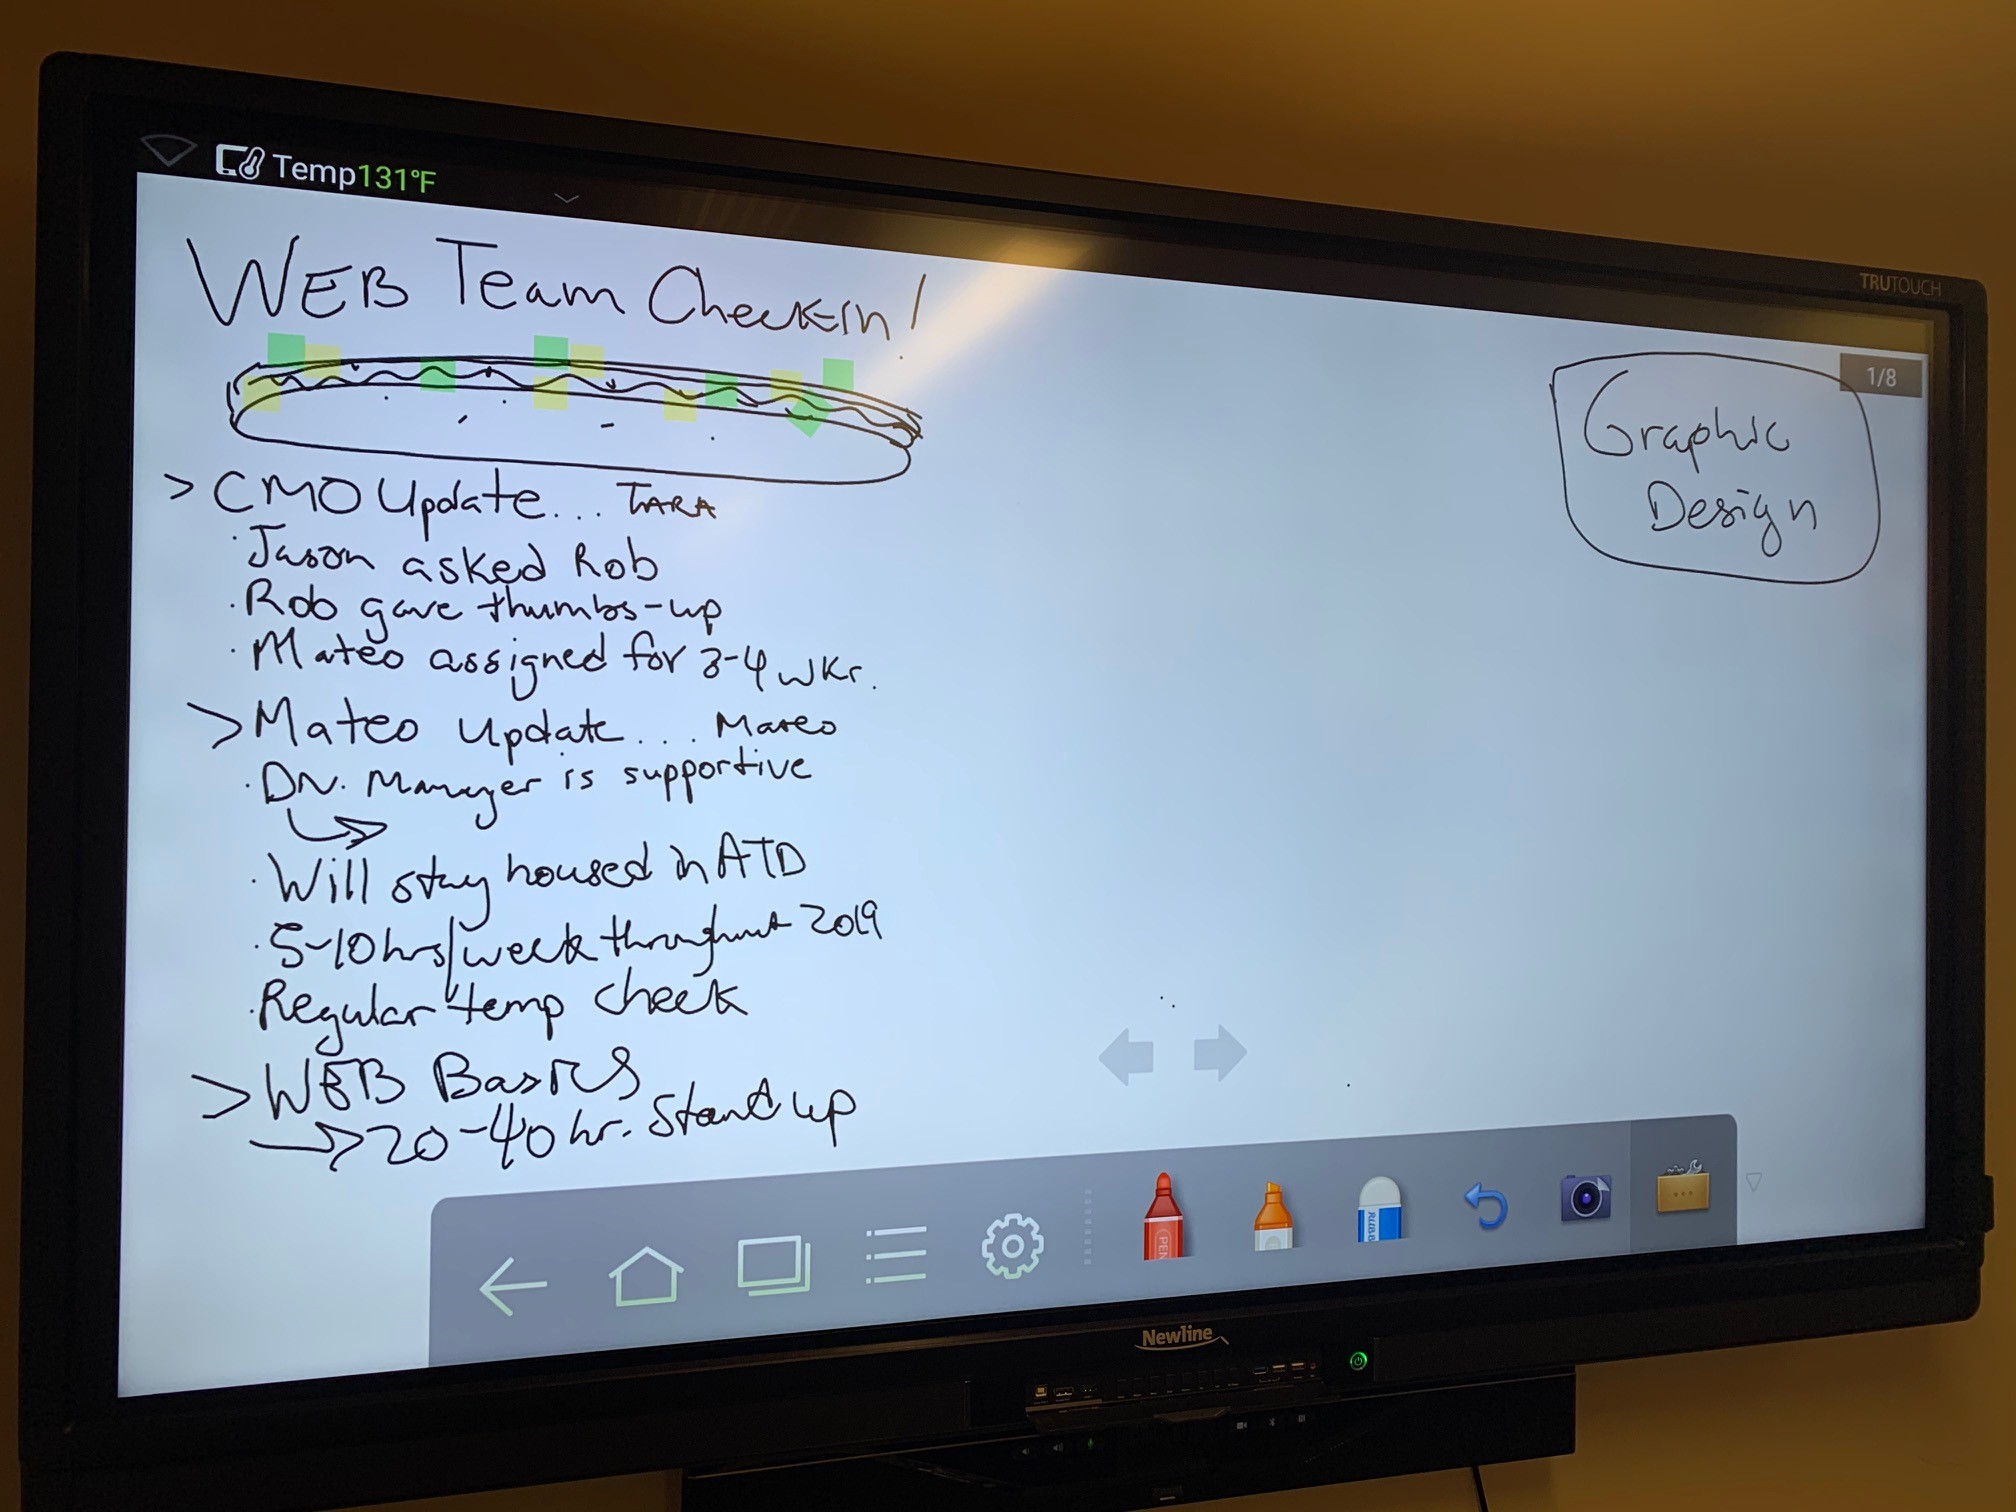 Temp131°F
TRUTOUCH
WEB Team Check-in!
1/8
Graphic
Design
> CMO Update... TARA
· Jason asked Rob
· Rob gave thumbs-up
· Mateo assigned for 3-4 wks.
> Mateo update... Mateo
· Div. Manager is supportive
· Will stay housed in ATD
· 5-10 hrs/week throughout 2019
· Regular temp check
> WEB Basics
→ 20-40 hr. Stand up
PEN
RUBB
Newline